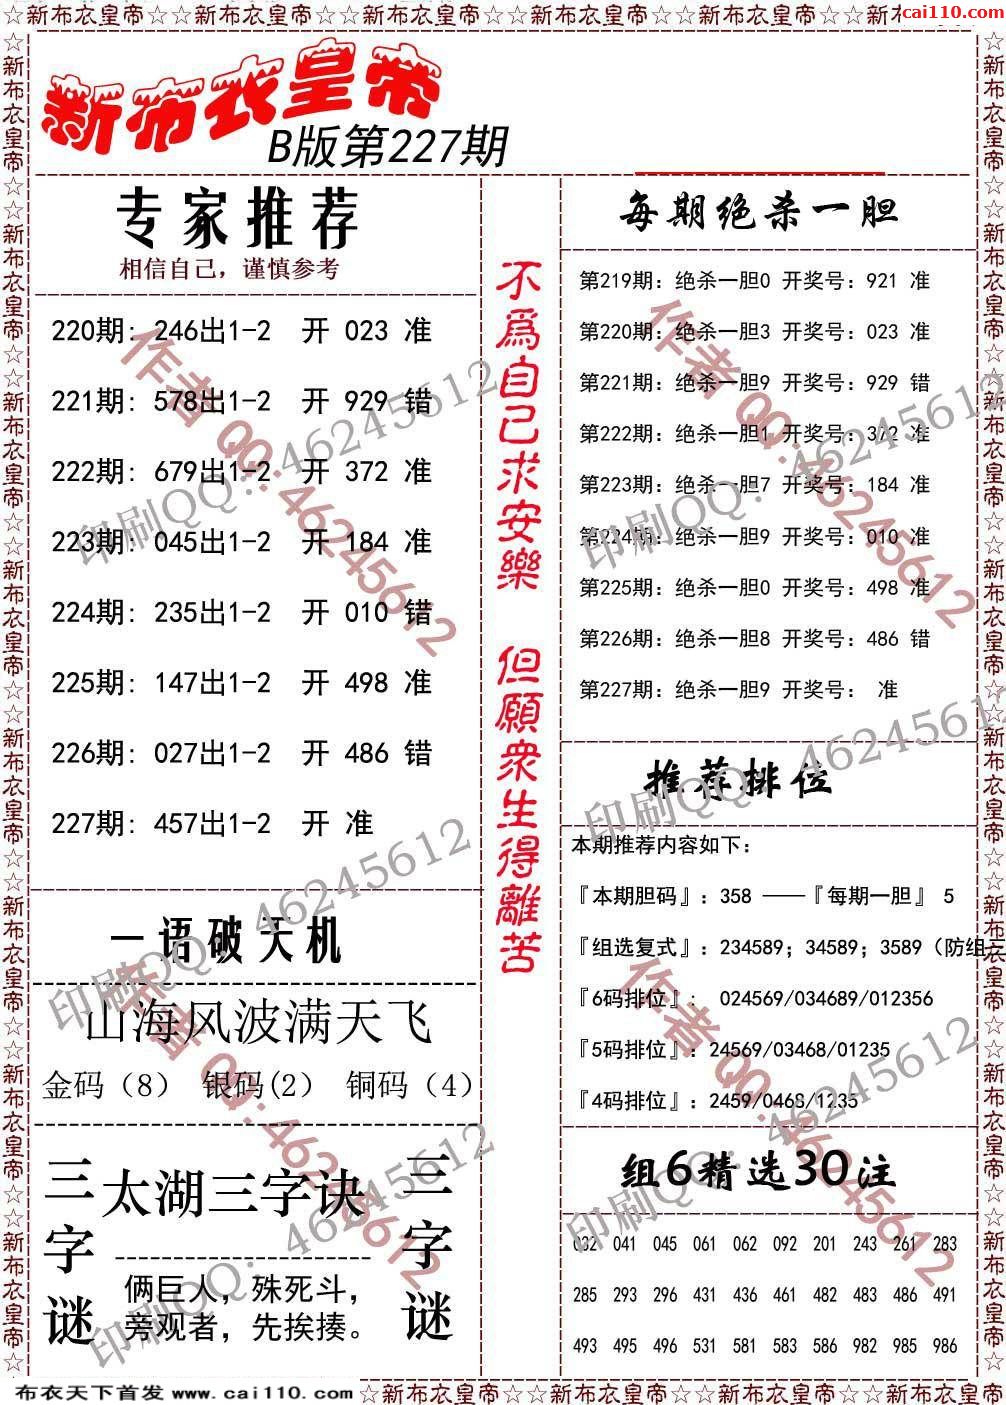 ☆新布衣皇帝☆☆新布衣皇帝☆☆新布衣皇帝☆☆新布衣皇帝☆☆新布衣皇帝☆☆新
cai110.com
新布衣皇帝
B版第227期
专家推荐
相信自己，谨慎参考
220期: 246出1-2 开 023 准
221期: 578出1-2 开 929 错
222期: 679出1-2 开 372 准
223期: 045出1-2 开 184 准
224期: 235出1-2 开 010 错
225期: 147出1-2 开 498 准
226期: 027出1-2 开 486 错
227期: 457出1-2 开 准
一语破天机
山海风波满天飞
金码（8） 银码(2） 铜码（4）
三字谜
太湖三字诀
俩巨人，殊死斗，
旁观者，先挨揍。
三字谜
不爲自己求安樂 但願衆生得離苦
每期绝杀一胆
第219期: 绝杀一胆0 开奖号: 921 准
第220期: 绝杀一胆3 开奖号: 023 准
第221期: 绝杀一胆9 开奖号: 929 错
第222期: 绝杀一胆1 开奖号: 372 准
第223期: 绝杀一胆7 开奖号: 184 准
第224期: 绝杀一胆9 开奖号: 010 准
第225期: 绝杀一胆0 开奖号: 498 准
第226期: 绝杀一胆8 开奖号: 486 错
第227期: 绝杀一胆9 开奖号: 准
推荐排位
本期推荐内容如下:
『本期胆码』: 358 ——『每期一胆』 5
『组选复式』: 234589; 34589; 3589（防组三
『6码排位』: 024569/034689/012356
『5码排位』: 24569/03468/01235
『4码排位』: 2459/0468/1235
组6精选30注
032 041 045 061 062 092 201 243 261 283
285 293 296 431 436 461 482 483 486 491
493 495 496 531 581 583 586 982 985 986
作者 QQ: 46245612
印刷QQ: 46245612
作者 QQ: 46245612
印刷QQ: 46245612
印刷QQ: 46245612
印刷QQ: 46245612
作者 QQ: 46245612
作者 QQ: 46245612
印刷QQ: 46245612
印刷QQ: 46245612
布衣天下首发 www.cai110.com
☆新布衣皇帝☆☆新布衣皇帝☆☆新布衣皇帝☆☆新布衣皇帝☆